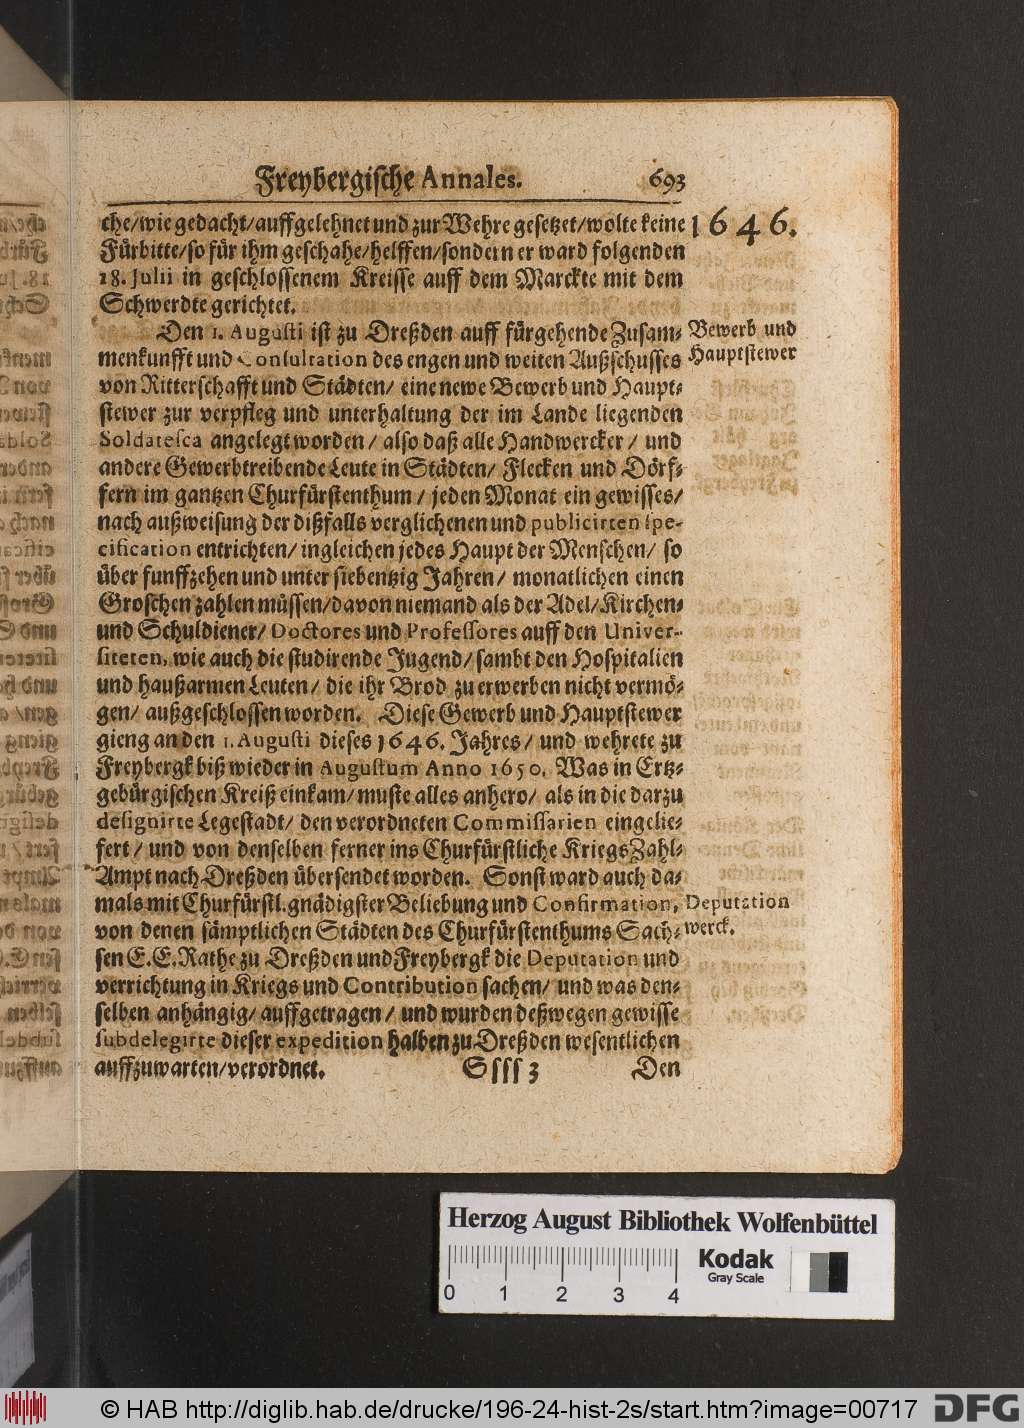 Freybergische Annales. 693
che/wie gedacht/auffgelehnet und zur Wehre gesetzet/wolte keine
1646.
Fürbitte/so für ihm geschahe/helffen/sondern er ward folgenden
18. Julii in geschlossenem Kreisse auff dem Marckte mit dem
Schwerdte gerichtet.
Den 1. Augusti ist zu Dreßden auff fürgehende Zusam-
Bewerb und
menkunfft und Consultation des engen und weiten Außschusses
Hauptstewer
von Ritterschafft und Städten/ eine newe Bewerb und Haupt-
stewer zur verpfleg und unterhaltung der im Lande liegenden
Soldatesca angelegt worden / also daß alle Handwercker / und
andere Gewerbtreibende Leute in Städten/ Flecken und Dörf-
fern im gantzen Churfürstenthum / jeden Monat ein gewisses/
nach außweisung der dißfalls verglichenen und publicirten spe-
cification entrichten/ ingleichen jedes Haupt der Menschen/ so
über funffzehen und unter siebentzig Jahren/ monatlichen einen
Groschen zahlen müssen/davon niemand als der Adel/Kirchen-
und Schuldiener/ Doctores und Professores auff den Univer-
siteten, wie auch die studirende Jugend/ sambt den Hospitalien
und haußarmen Leuten/ die ihr Brod zu erwerben nicht vermö-
gen/ außgeschlossen worden. Diese Gewerb und Hauptstewer
gieng an den 1. Augusti dieses 1646. Jahres/ und wehrete zu
Freybergk biß wieder in Augustum Anno 1650. Was in Ertz-
gebürgischen Kreiß einkam/ muste alles anhero/ als in die darzu
designirte Legestadt/ den verordneten Commissarien eingelie-
fert / und von denselben ferner ins Churfürstliche KriegsZahl-
Ampt nach Dreßden übersendet worden. Sonst ward auch da-
mals mit Churfürstl. gnädigster Beliebung und Confirmation,
Deputation
von denen sämptlichen Städten des Churfürstenthums Sach-
werck.
sen E. E. Rathe zu Dreßden und Freybergk die Deputation und
verrichtung in Kriegs und Contribution sachen/ und was den-
selben anhängig/ auffgetragen / und wurden deßwegen gewisse
subdelegirte dieser expedition halben zu Dreßden wesentlichen
auffzuwarten/verordnet.
Ssss 3 Den
Herzog August Bibliothek Wolfenbüttel
Kodak
Gray Scale
0 1 2 3 4
© HAB http://diglib.hab.de/drucke/196-24-hist-2s/start.htm?image=00717
DFG